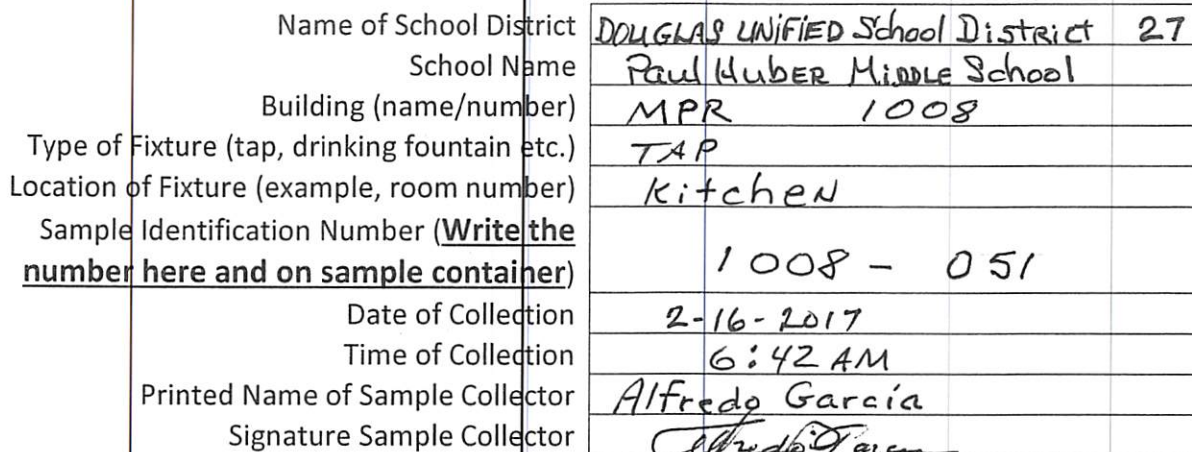 Name of School District DOUGLAS UNiFiED School District 27
School Name Paul Huber Middle School
Building (name/number) MPR 1008
Type of Fixture (tap, drinking fountain etc.) TAP
Location of Fixture (example, room number) Kitchen
Sample Identification Number (Write the
number here and on sample container) 1008 - 051
Date of Collection 2-16-2017
Time of Collection 6:42 AM
Printed Name of Sample Collector Alfredo Garcia
Signature Sample Collector Alfredo Garcia